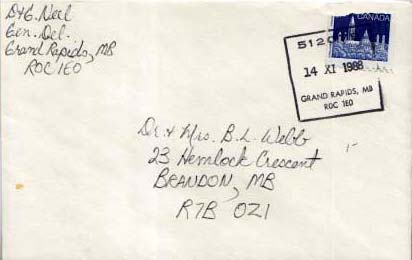 D+G. Neel
Gen. Del.
Grand Rapids, MB
R0C 1E0
CANADA
14 XI 1988
GRAND RAPIDS, MB
R0C 1E0
Dr. + Mrs. B. L. Webb
23 Hemlock Crescent
BRANDON, MB
R7B 0Z1